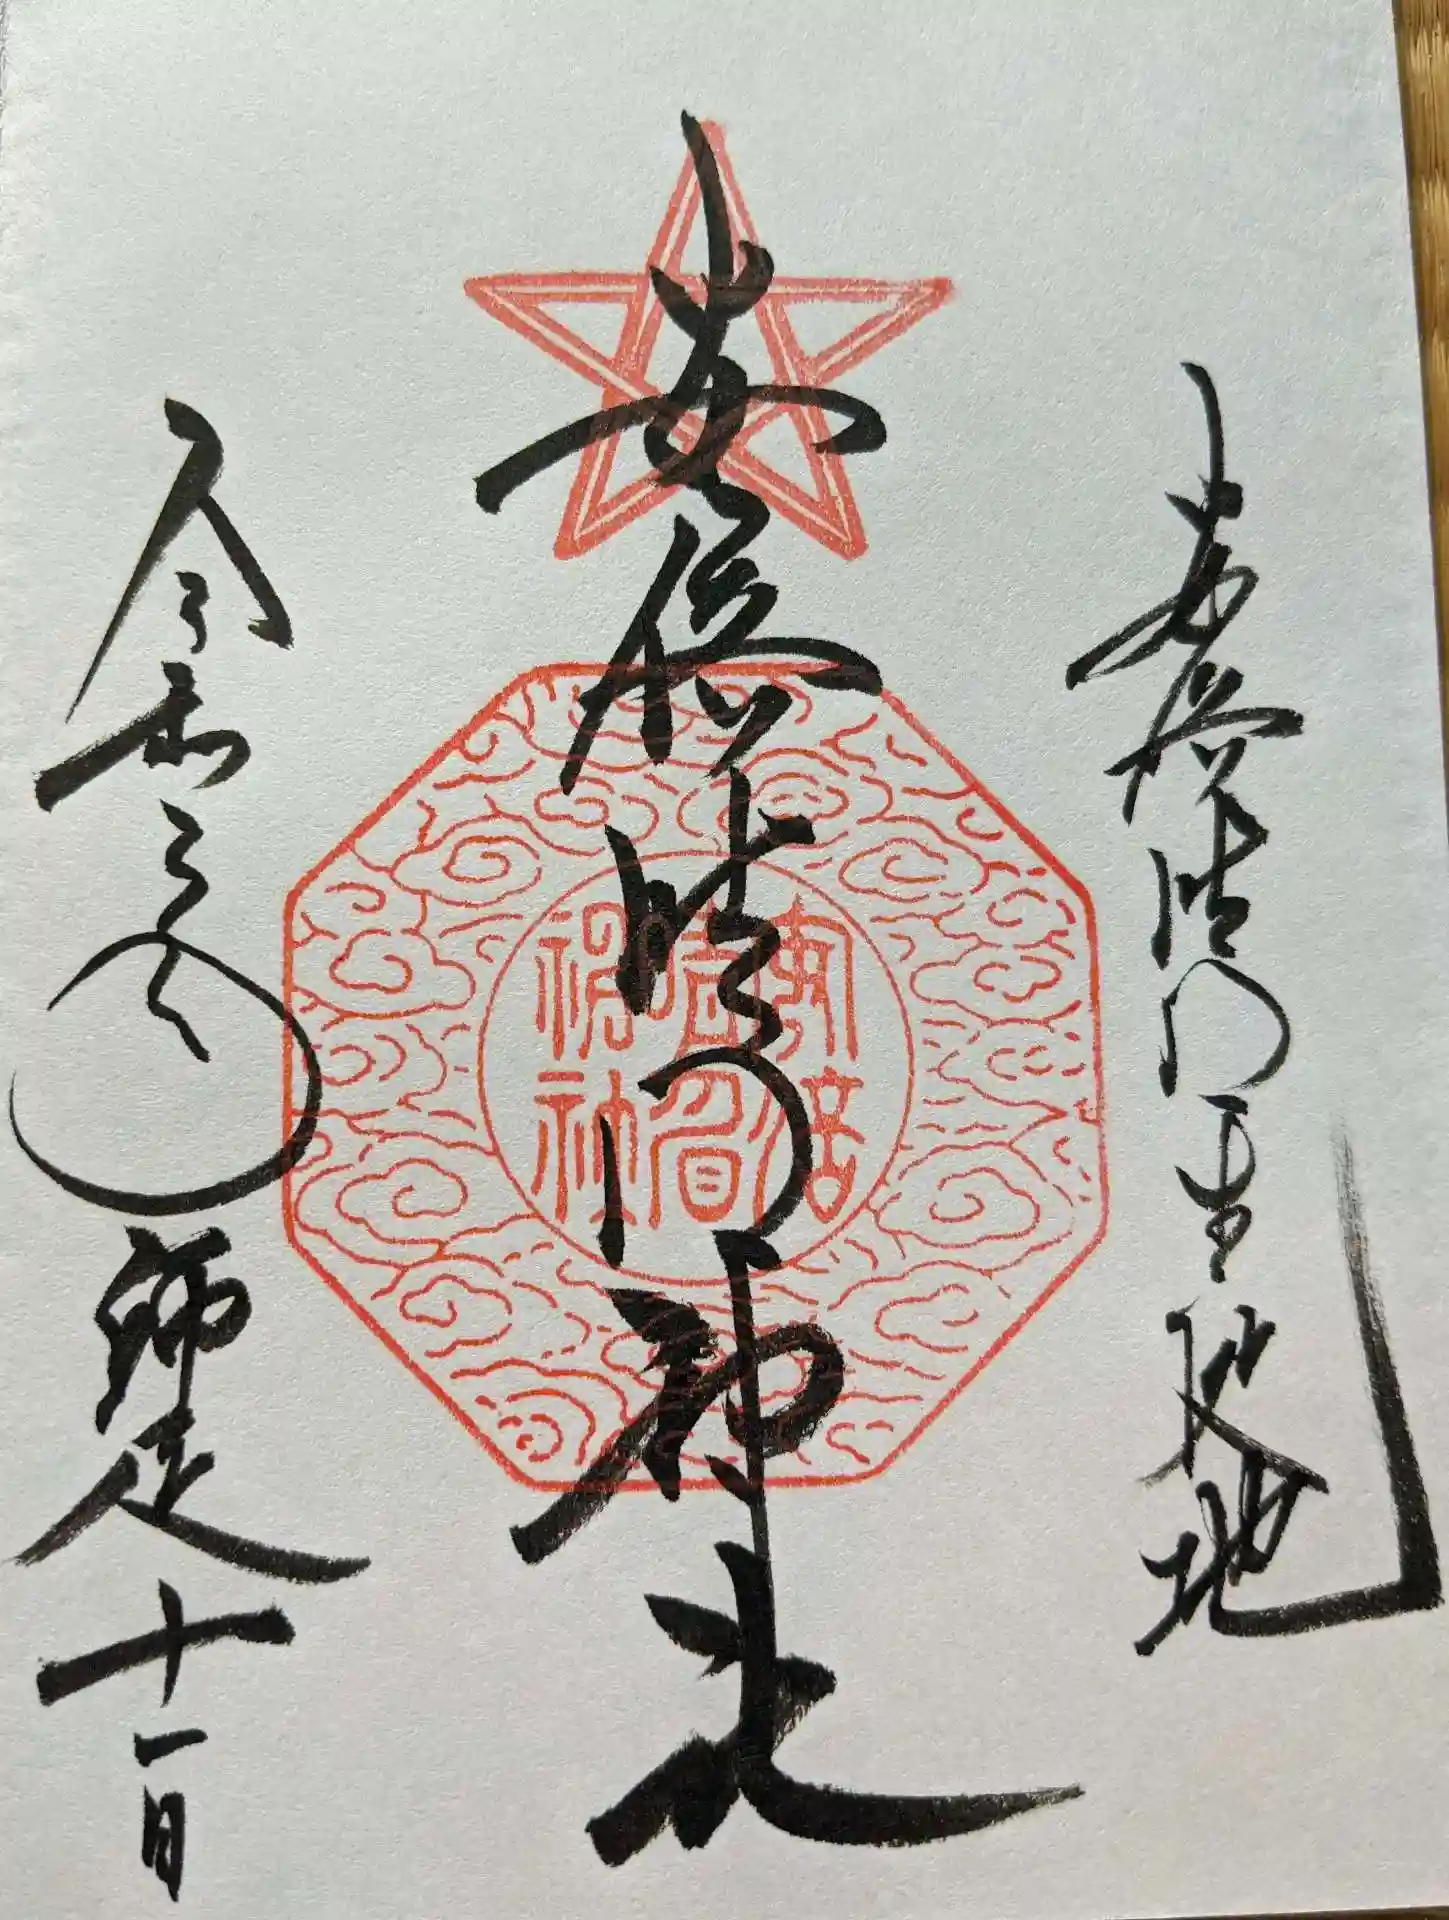 安倍晴明生誕地
安倍晴明神社
安倍
晴明
神社
令和年師走十一日